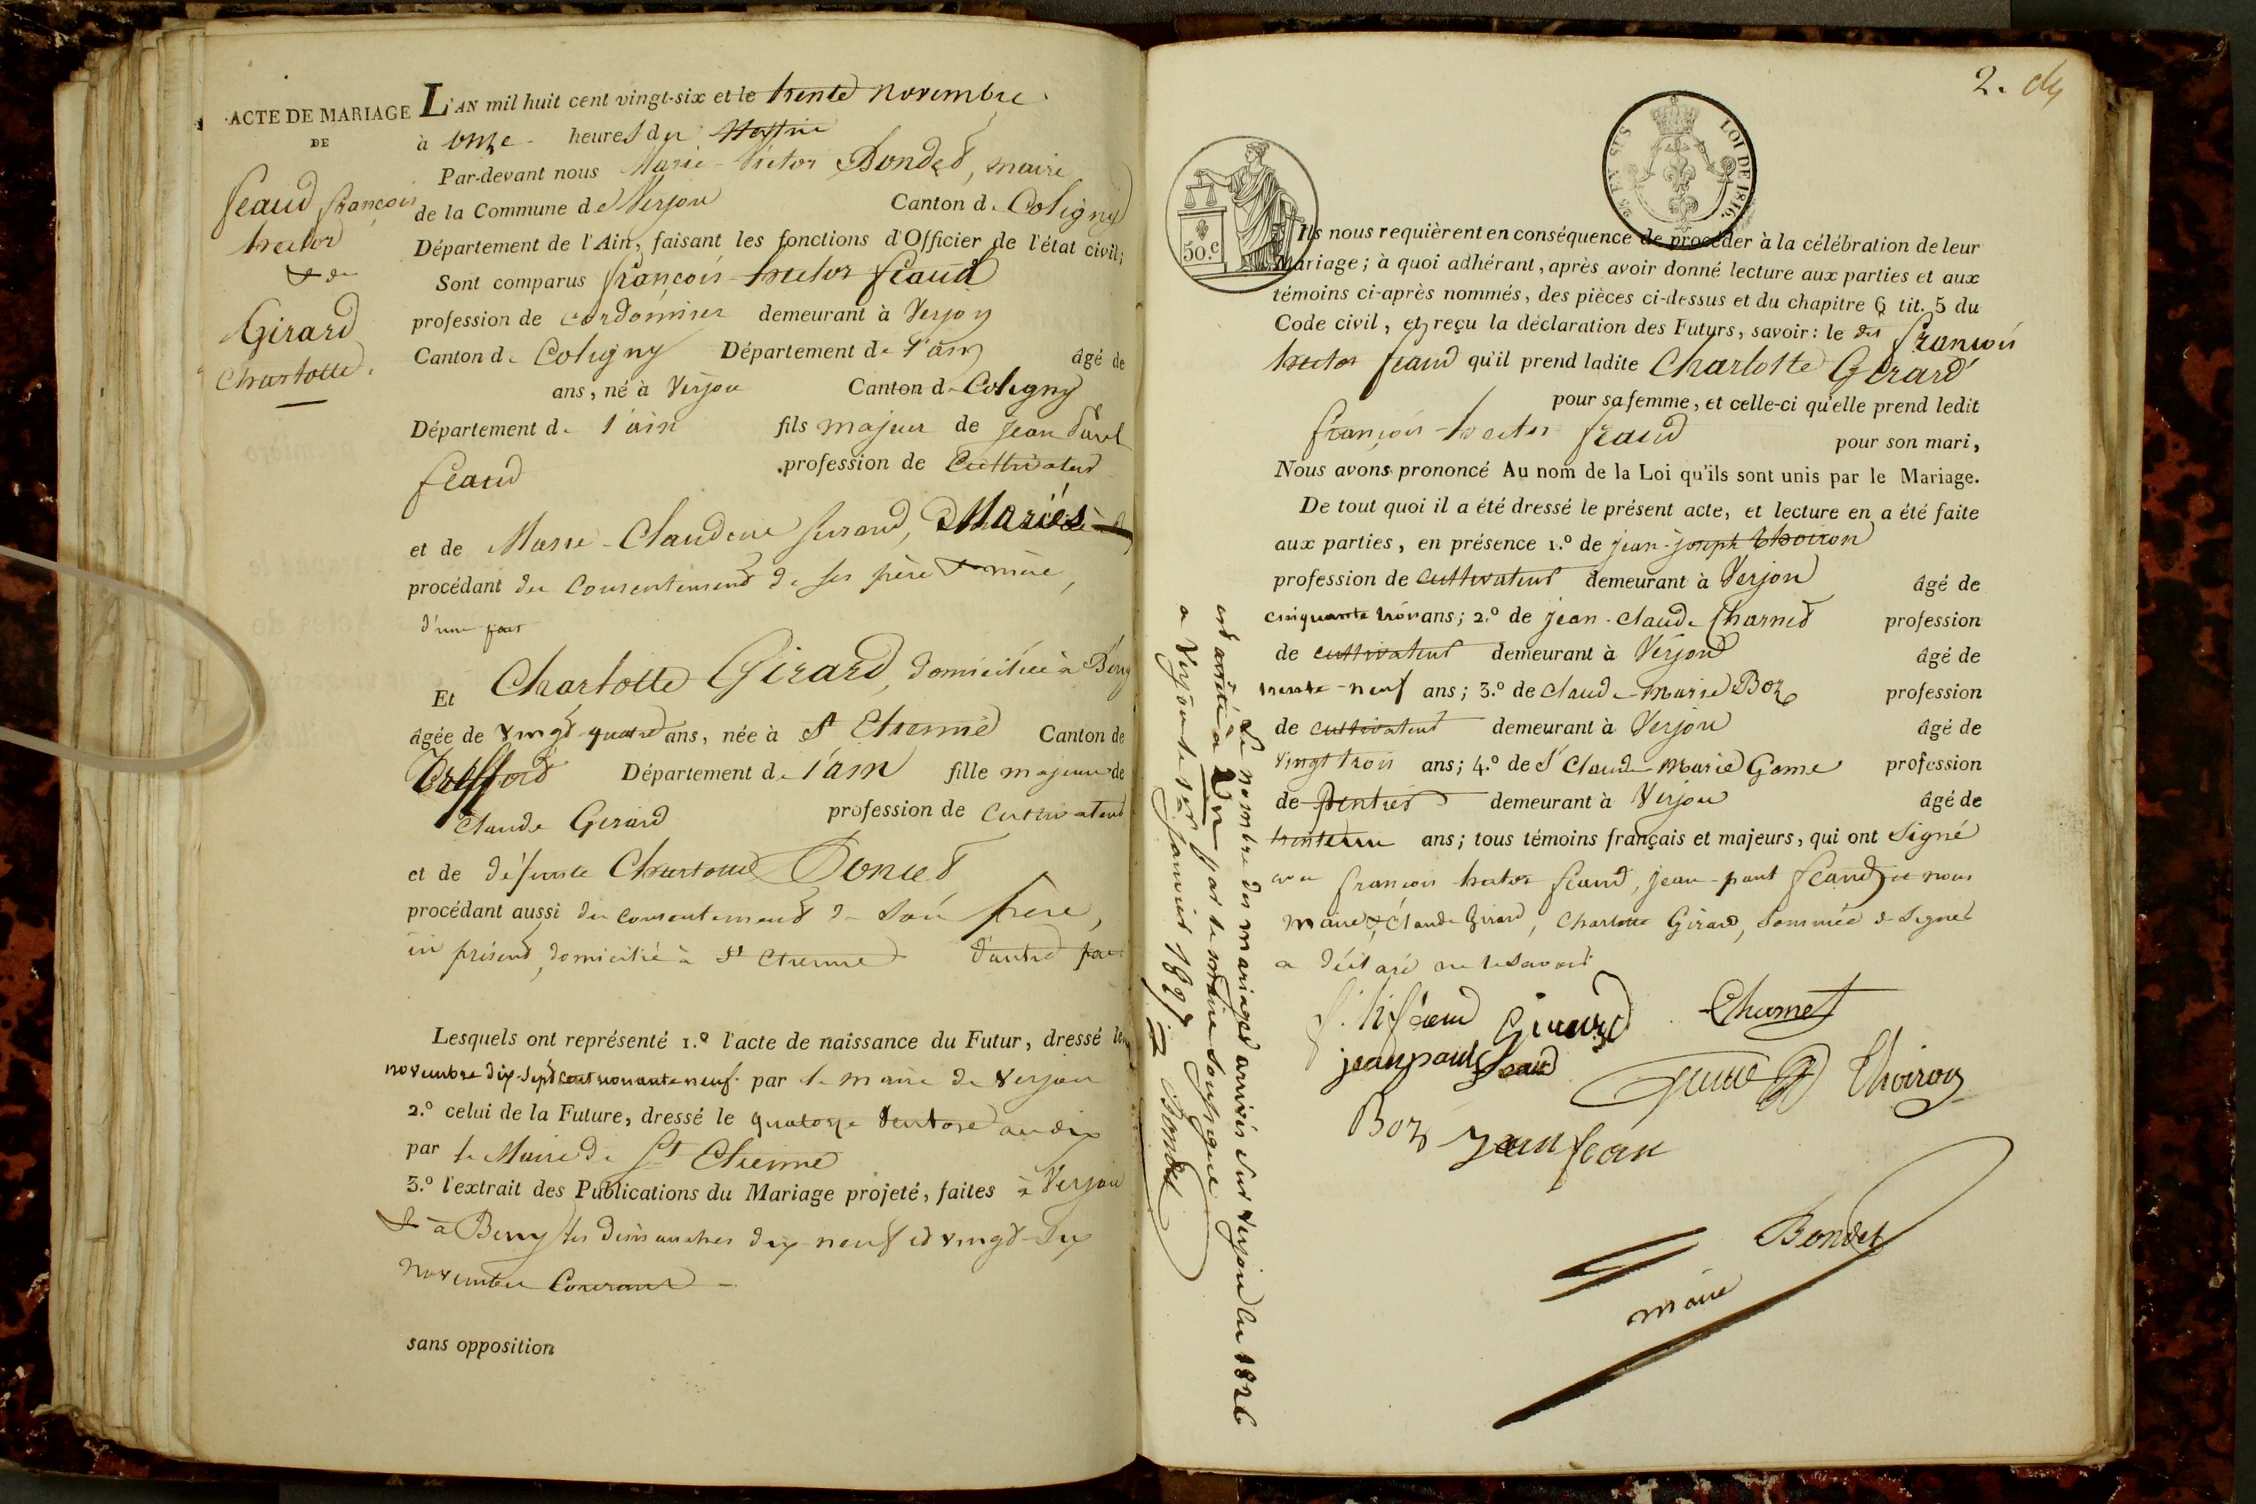 ACTE DE MARIAGE
DE
feaud françois
hector
& de
Girard
Charlotte.
L'AN mil huit cent vingt-six et le trente novembre
à onze heures du matin
Par-devant nous Marie-Victor Bondet, maire
de la Commune de Verjon Canton de Coligny
Département de l'Ain, faisant les fonctions d'Officier de l'état civil;
Sont comparus françois-hector feaud
profession de cordonnier demeurant à Verjon
Canton de Coligny Département de l'ain âgé de
ans, né à Verjon Canton de Coligny
Département de l'ain fils majeur de jean Paul
feaud profession de Cultivateur
et de Marie-Claudine, Mariés
procédant du consentement de ses père & mère,
d'une part
Et Charlotte Girard, domiciliée à Bény
âgée de vingt-quatre ans, née à St Etienne Canton de
Treffort Département de l'ain fille majeure de
Claude Girard profession de Cultivateur
et de défunte Charlotte
procédant aussi du consentement de son père,
ici présent, domicilié à St Etienne d'autre part
Lesquels ont représenté 1.º l'acte de naissance du Futur, dressé le
novembre dix-sept cent nonante neuf par le maire de Verjon
2.º celui de la Future, dressé le quatorze Ventose an dix
par le Maire de St Etienne
3.º l'extrait des Publications du Mariage projeté, faites à Verjon
& à Beny les dimanches dix-neuf et vingt-six
novembre Courant
sans opposition
2.
LOI DE 1816.
50.c
Ils nous requièrent en conséquence de procéder à la célébration de leur
Mariage; à quoi adhérant, après avoir donné lecture aux parties et aux
témoins ci-après nommés, des pièces ci-dessus et du chapitre 6 tit. 5 du
Code civil, et reçu la déclaration des Futurs, savoir: le dit françois
hector feaud qu'il prend ladite Charlotte Girard
pour sa femme, et celle-ci qu'elle prend ledit
françois-hector feaud pour son mari,
Nous avons prononcé Au nom de la Loi qu'ils sont unis par le Mariage.
De tout quoi il a été dressé le présent acte, et lecture en a été faite
aux parties, en présence 1.º de jean-joseph Thoiron
profession de cultivateur demeurant à Verjon âgé de
cinquante trois ans; 2.º de jean-claude Charnet profession
de cultivateur demeurant à Verjon âgé de
trente-neuf ans; 3.º de claude-marie Boz profession
de cultivateur demeurant à Verjon âgé de
vingt trois ans; 4.º de Sr Claude-Marie Game profession
de Rentier demeurant à Verjon âgé de
trente un ans; tous témoins français et majeurs, qui ont signé
avec françois hector feaud, jean-paul feaud et nous
maire, & Claude Girard, Charlotte Girard, sommée de signer
a déclaré ne le savoir
f. h feaud Girard Charnet
jeanpaul feaud Game Thoiron
Boz
Bondet
maire
Le nombre des mariages arrivés sur Verjon en 1826
est arrêté à par le maire soussigné
a Verjon le 1er janvier 1827 Bondet